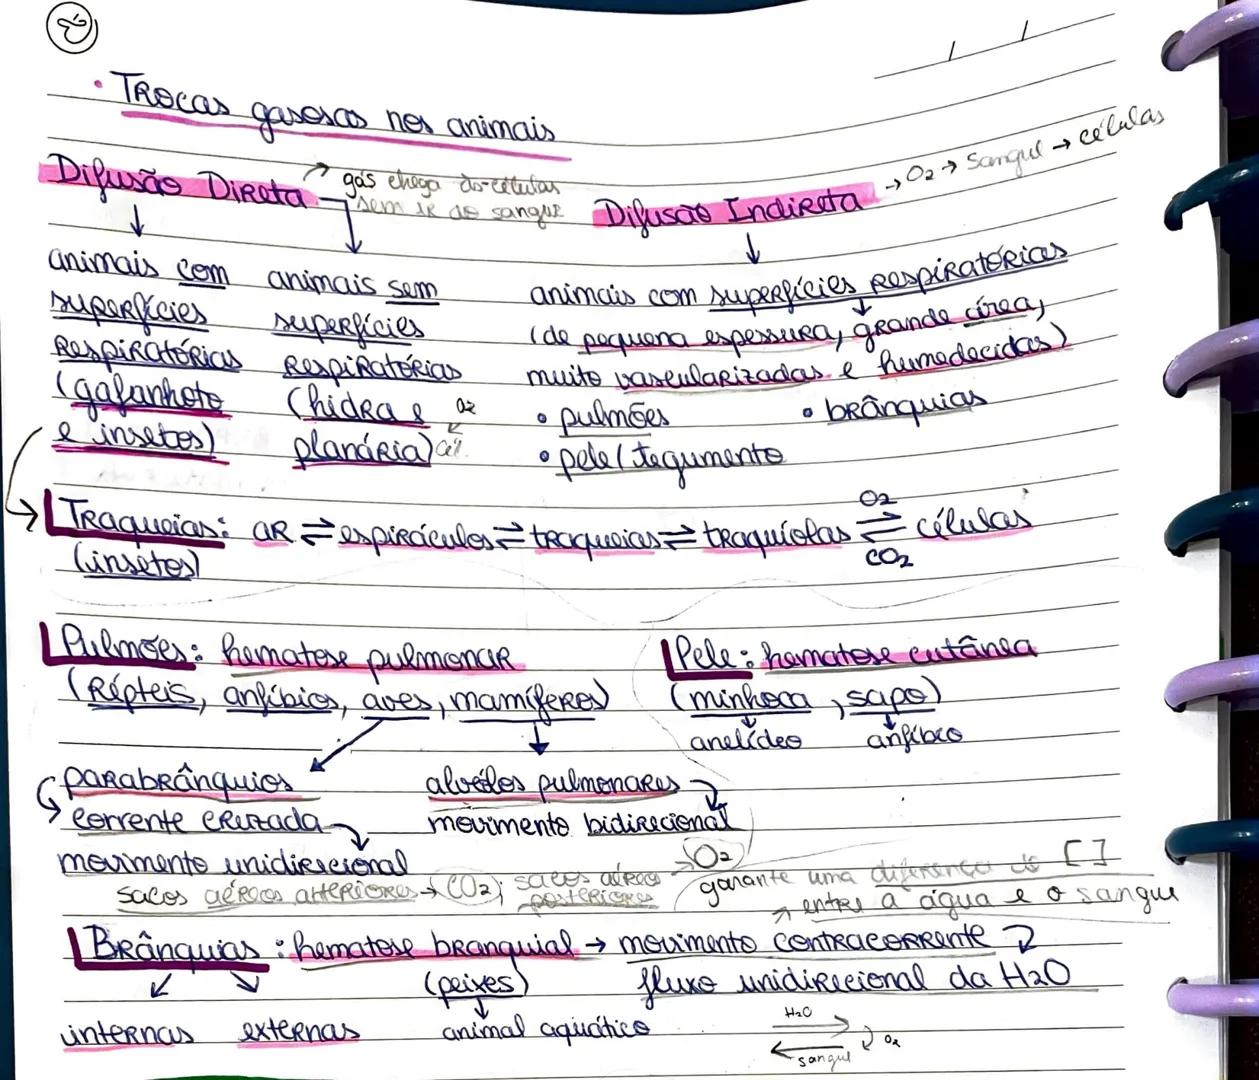 • Trocas gasosas nos animais
Difusão Direta → gás chega às células
sem ir ao sangue
Difusão Indireta → O2 → Sangue → células
↓ ↓
animais com superfícies respiratórias (gafanhoto e insetos)
animais sem superfícies respiratórias (hidra e planária)
O2
↓
cél.
↓
animais com superfícies respiratórias
(de pequena espessura, grande área,
muito vascularizadas e humedecidas)
• pulmões • brânquias
• pele/tegumento
Traqueias: AR ⇌ espiráculos ⇌ traqueias ⇌ traquíolas ⇌ células
O2
CO2
(insetos)
Pulmões: hematose pulmonar
(Répteis, anfíbios, aves, mamíferos)
Pele: hematose cutânea
(minhoca, sapo)
anelídeo anfíbio
parabrânquios
corrente cruzada
movimento unidirecional
alvéolos pulmonares
movimento bidirecional
sacos aéreos anteriores → CO2; sacos aéreos posteriores → O2
garante uma diferença de [ ]
entre a água e o sangue
Brânquias: hematose branquial → movimento contracorrente
(peixes) fluxo unidirecional da H2O
internas externas animal aquático
H2O
sangue O2